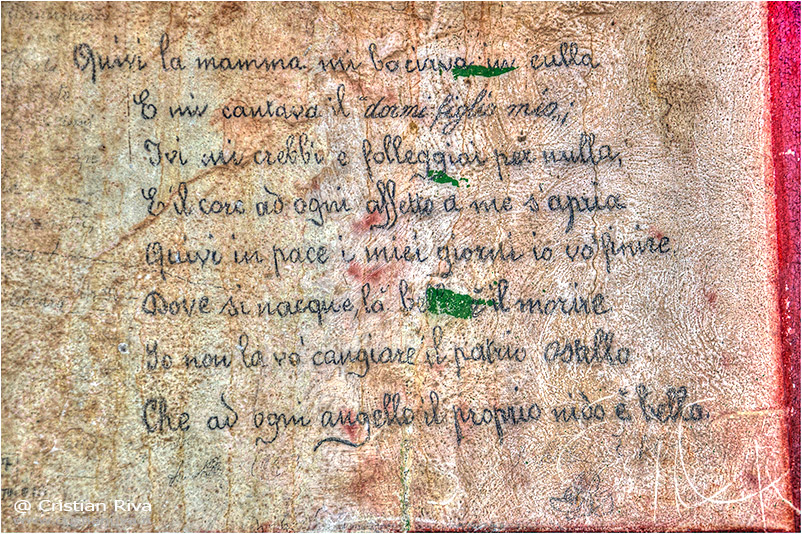 Quivi la mamma mi baciava in culla
E mi cantava il "dormi figlio mio,,;
Ivi mi crebbi e folleggiai per nulla,
E il core ad ogni affetto a me s'apria
Quivi in pace i miei giorni io vo' finire
Dove si nacque, là è il morire
Io non la vo' cangiare il patrio ostello
Che ad ogni augello il proprio nido è bello.
@ Cristian Riva